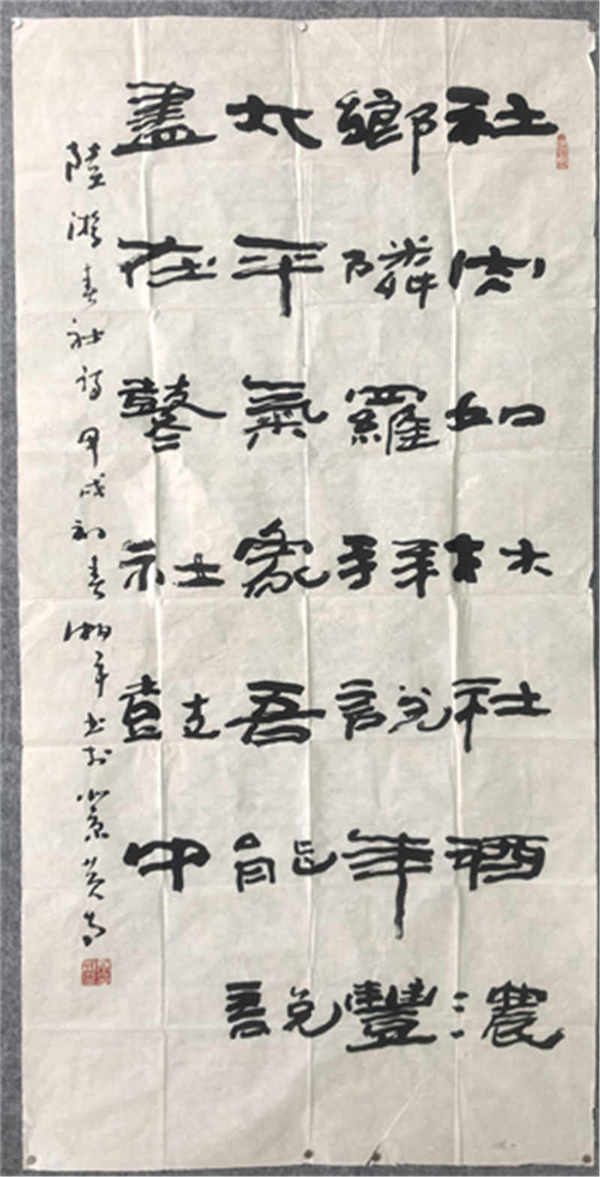 社肉如林社酒濃
鄉隣羅拜説年豐
太平氣象吾能説
盡在鼕社鼓中
陸游春社詩甲戌初春书於